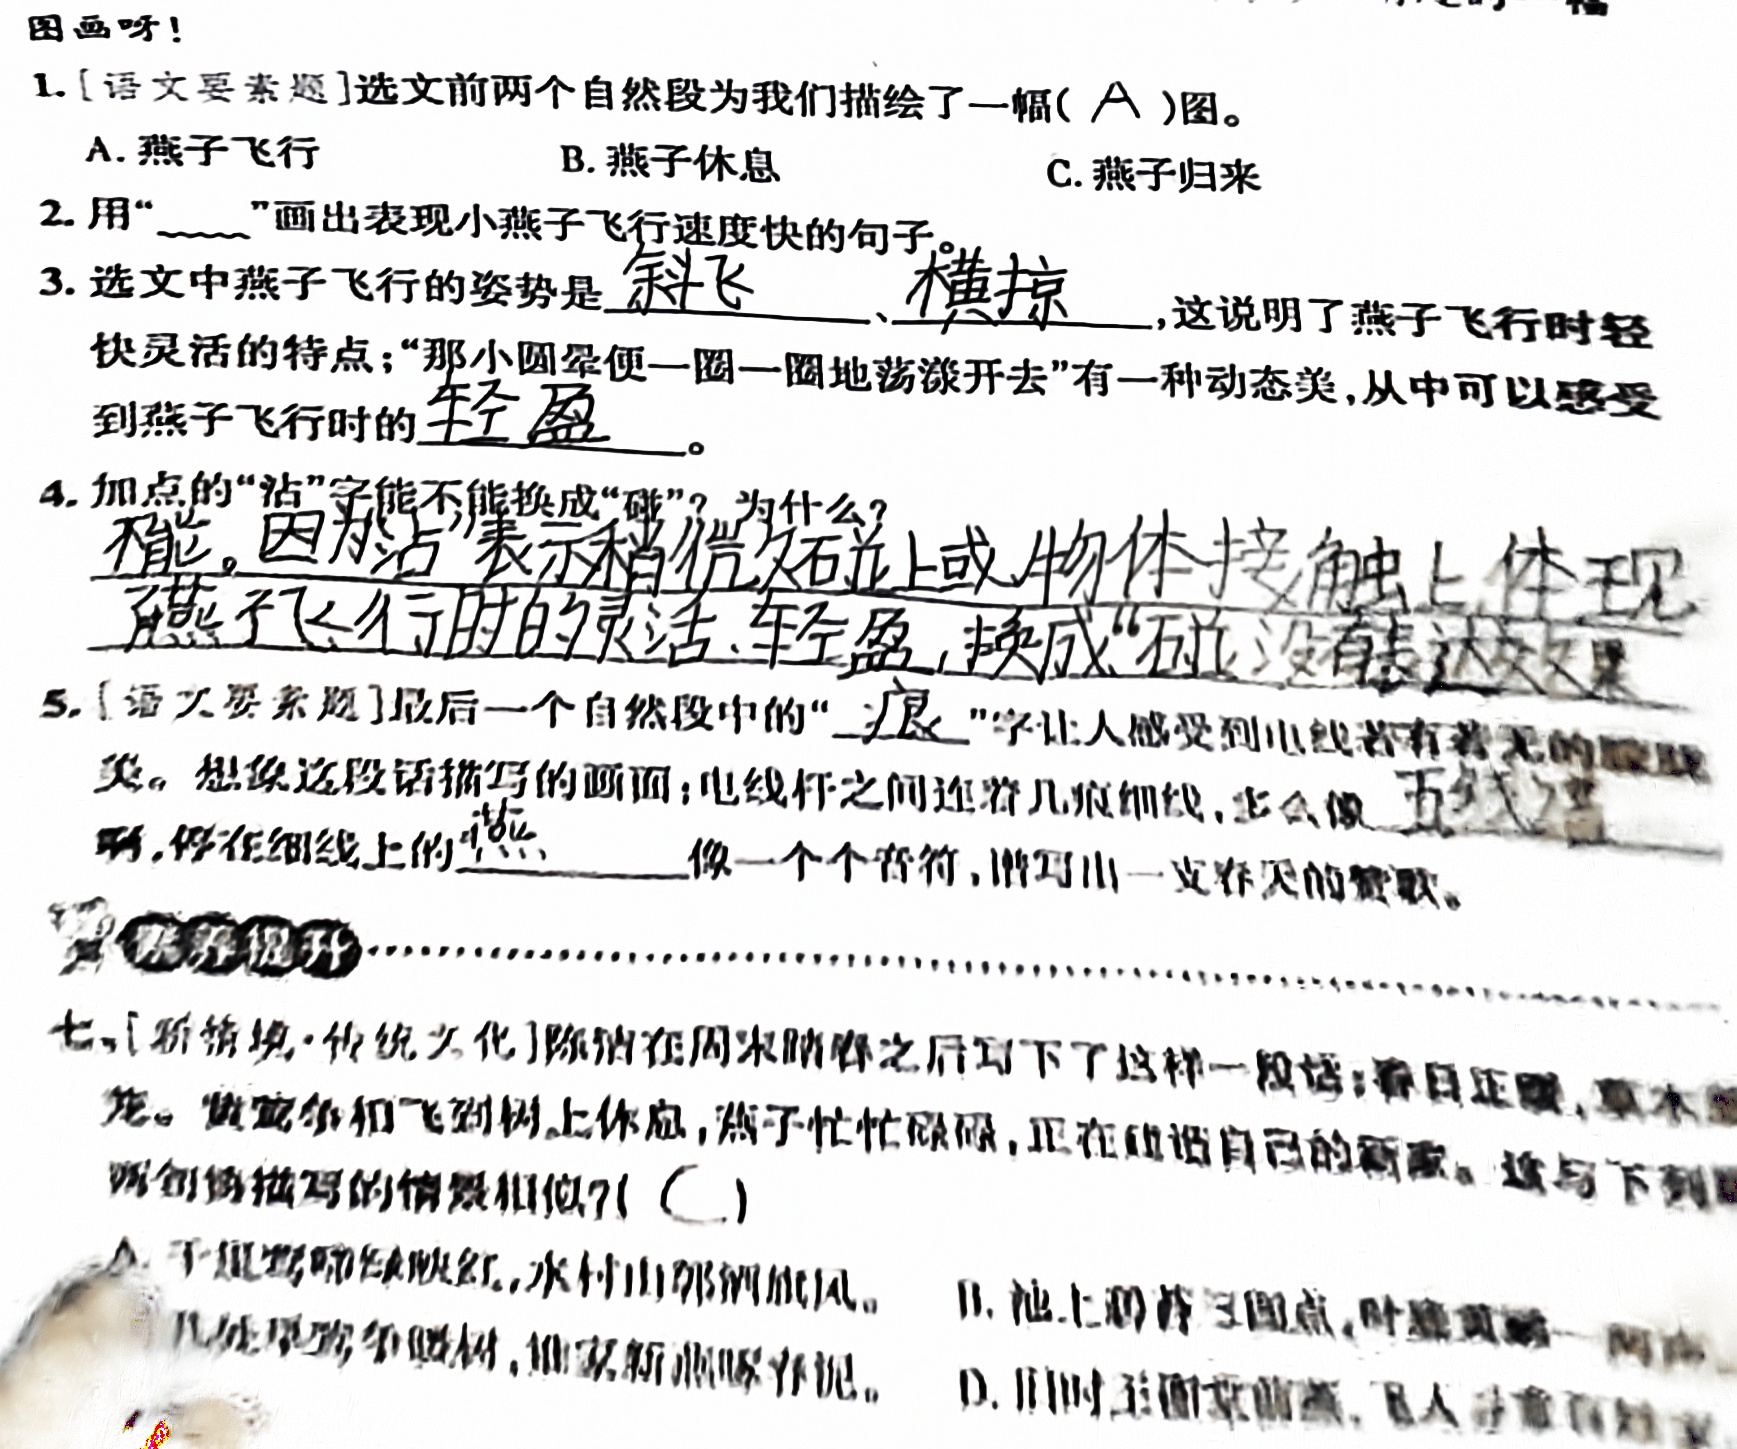 图画呀！
1.[语文要素题]选文前两个自然段为我们描绘了一幅( A )图。
A. 燕子飞行 B. 燕子休息 C. 燕子归来
2. 用“﹏﹏”画出表现小燕子飞行速度快的句子。
3. 选文中燕子飞行的姿势是斜飞、横掠，这说明了燕子飞行时轻
快灵活的特点；“那小圆晕便一圈一圈地荡漾开去”有一种动态美，从中可以感受
到燕子飞行时的轻盈。
4. 加点的“沾”字能不能换成“碰”？为什么？
不能。因为“沾”表示稍微碰上或物体接触上,体现
燕子飞行时的灵活、轻盈,换成“碰没有表达效果
5.[语文要素题]最后一个自然段中的“痕”字让人感受到电线若有若无的
美。想象这段话描写的画面：电线杆之间连着几痕细线，多么像五线谱
啊，停在细线上的燕像一个个音符，谱写出一支春天的赞歌。
素养提升
七、[新情境·传统文化]陈 在周末踏春之后写下了这样一段话：春日正暖，草木
茏。黄莺争相飞到树上休息，燕子忙忙碌碌，正在建造自己的新家。这与下列
诗句描写的情景相似？( C )
A. 千里莺啼绿映红，水村山郭酒旗风。 B. 池上碧苔三四点，叶底黄鹂一两声
几处早莺争暖树，谁家新燕啄春泥。 D.